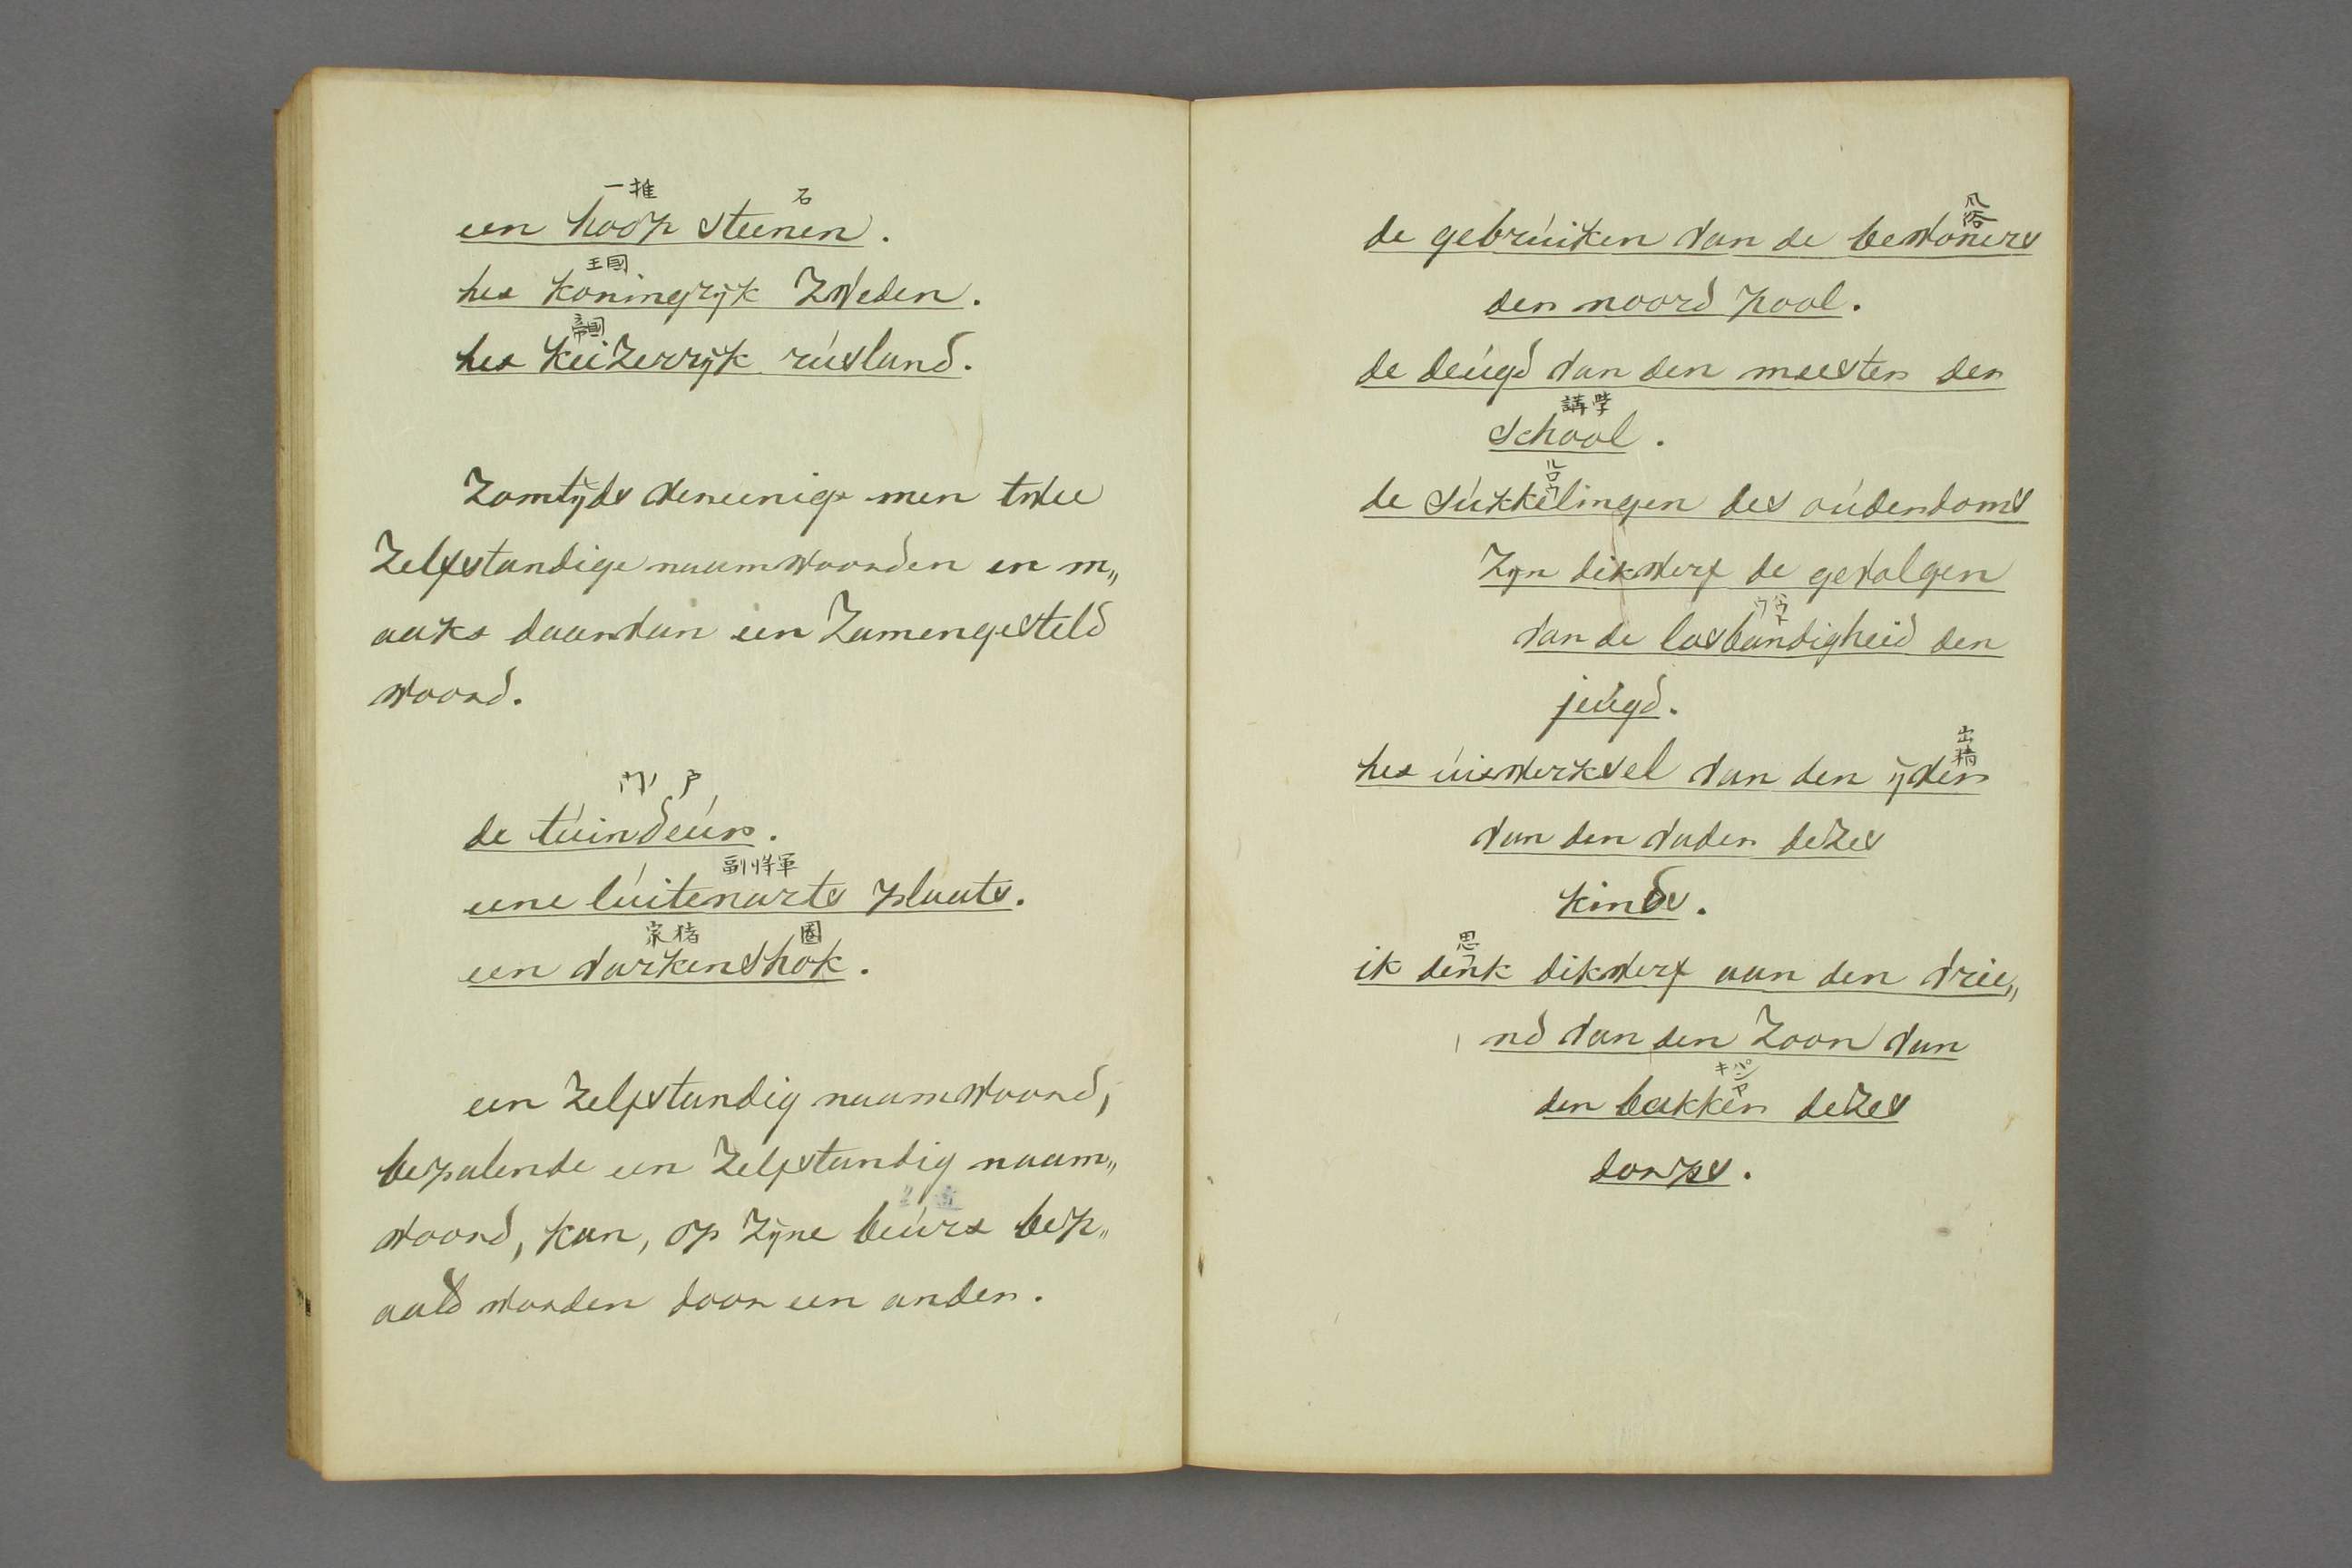 一推 石
een hoop steenen.
王國
het koningrijk Zweden.
帝國
het keizerrijk rúsland.
Zomtijds vereenigt men twee
Zelfstandige naamwoorden en m„
aakt daarvan een Zamengesteld
woord.
戸
de túindeúr.
副将軍
eene lúitenants plaats.
家猪 圏
een varkenshok.
een Zelfstandig naamwoord,
bepalende een Zelfstandig naam„
woord, kan, op Zijne beúrt bep„
aald worden door een ander.
風俗
de gebrúiken van de bewoners
der noord pool.
de deúgd van den meester der
講学
School.
de Súkkelingen des oúderdoms
Zijn dikwerf de gevolgen
van de losbandigheid der
jeúgd.
出精
het úitwerksel van den ijver
van den vader dezes
kinds.
思
ik denk dikwerf aan den vrie„
nd van den Zoon van
パンヤキ
den bakker dezes
dorps.